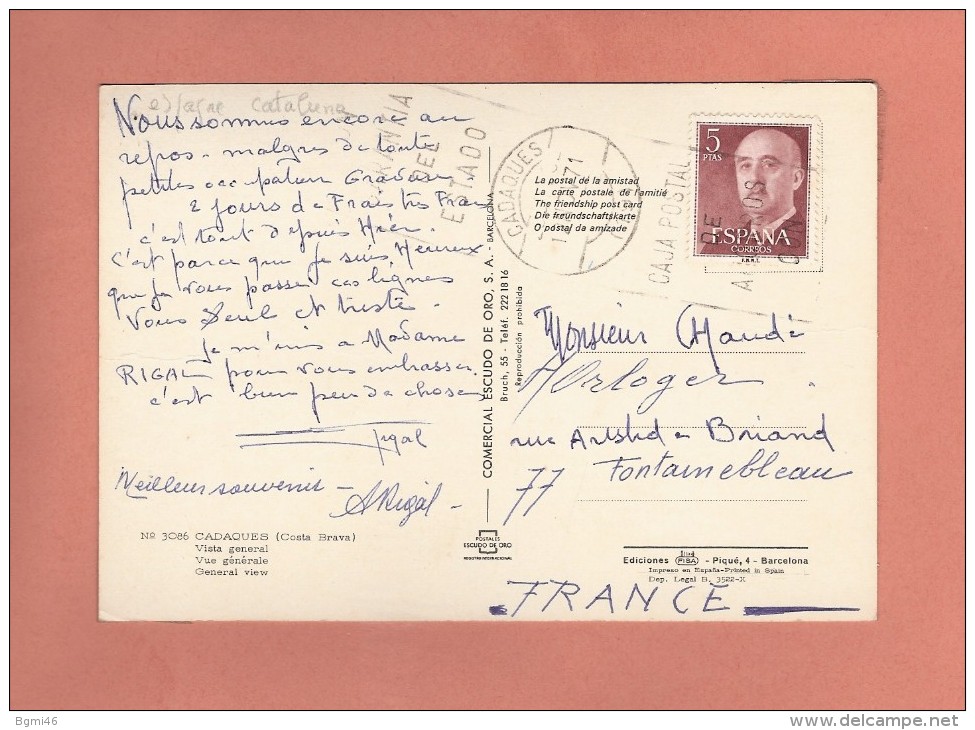 espagne Cataluna
Nous sommes encore au
repos - malgres de toute
petites occupation Gradeur
2 jours de Frais très Frais
c'est tout depuis Hier.
C'est parce que je suis Heureux
que je vous passer ces lignes
Vous Seul et triste
Je m'unis a Madame
RIGAL pour vous embrasser
c'est bien peu de chose
Rigal
Meilleur souvenir -
A Rigal -
Nº 3086 CADAQUES (Costa Brava)
Vista general
Vue générale
General view
COMERCIAL ESCUDO DE ORO, S. A. - BARCELONA
Bruch, 55 - Teléf. 222 18 16
Reproducción prohibida
POSTALES
ESCUDO DE ORO
REGISTRO INTERNACIONAL
GARANTIA
DEL
ESTADO
CADAQUES
71
La postal de la amistad
La carte postale de l'amitié
The friendship post card
Die freundschaftskarte
O postal da amizade
CAJA POSTAL
DE
CON
5
PTAS
ESPAÑA
CORREOS
F.N.M.T.
Monsieur Claude
Horloger
rue Aristid e Briand
77 Fontainebleau
FRANCE
Ediciones FISA - Piqué, 4 - Barcelona
Impreso en España-Printed in Spain
Dep. Legal B. 3522-X
Bgmi46
© delcampe.net